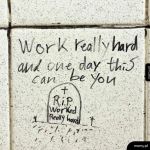 Work really hard
and one day this
can be you
R.I.P
Worked
Really hard